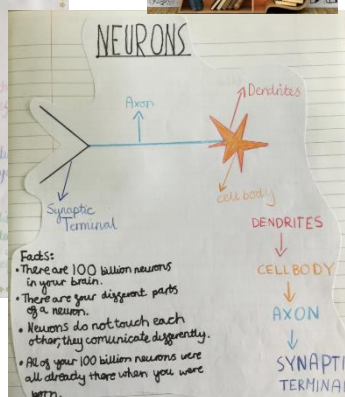 NEURONS
Dendrites
Axon
Synaptic
Terminal
cell body
DENDRITES
CELLBODY
AXON
SYNAPTI
TERMINAL
Facts:
• There are 100 billion neurons
in your brain.
• There are four different parts
of a neuron.
• Neurons do not touch each
other, they comunicate differently.
• All of your 100 billion neurons were
all already there when you were
born.